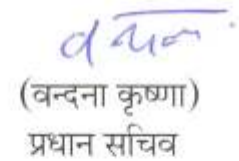 (वन्दना कृष्णा)
प्रधान सचिव